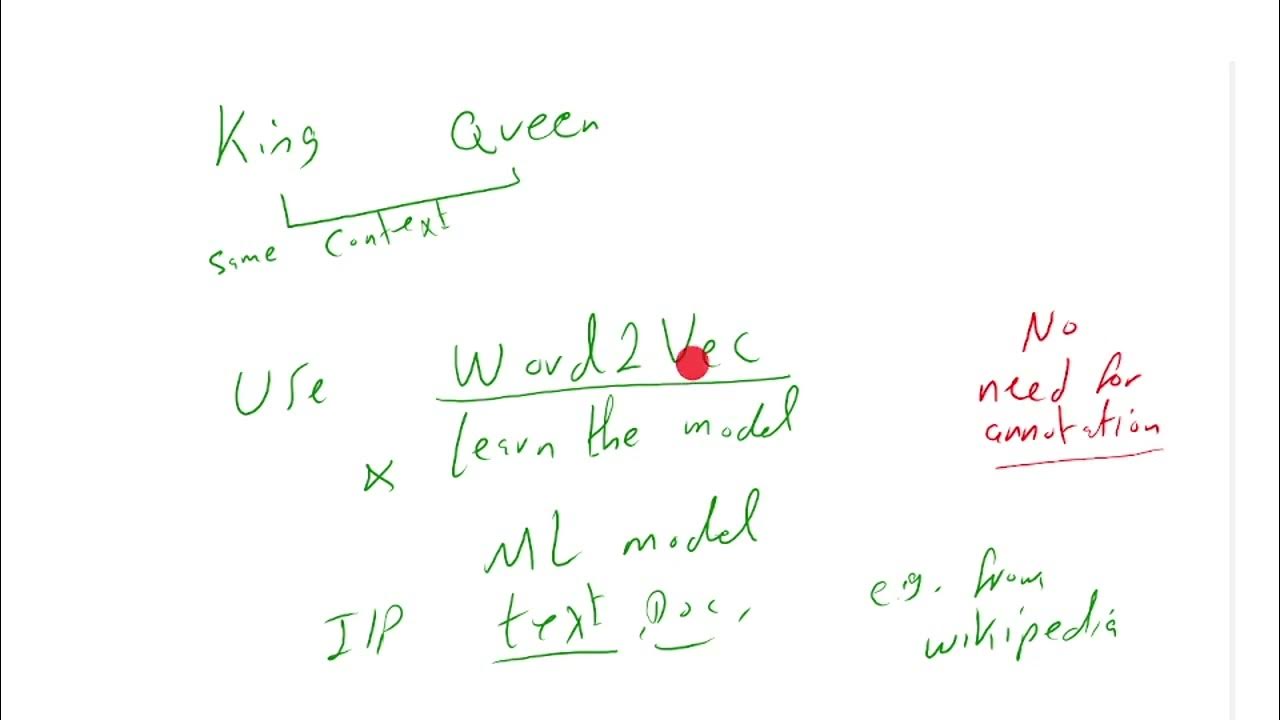 King Queen
Same Context
Use Word2Vec
learn the model
No
need for
annotation
ML model
I/P text, Doc,
e.g. from
wikipedia